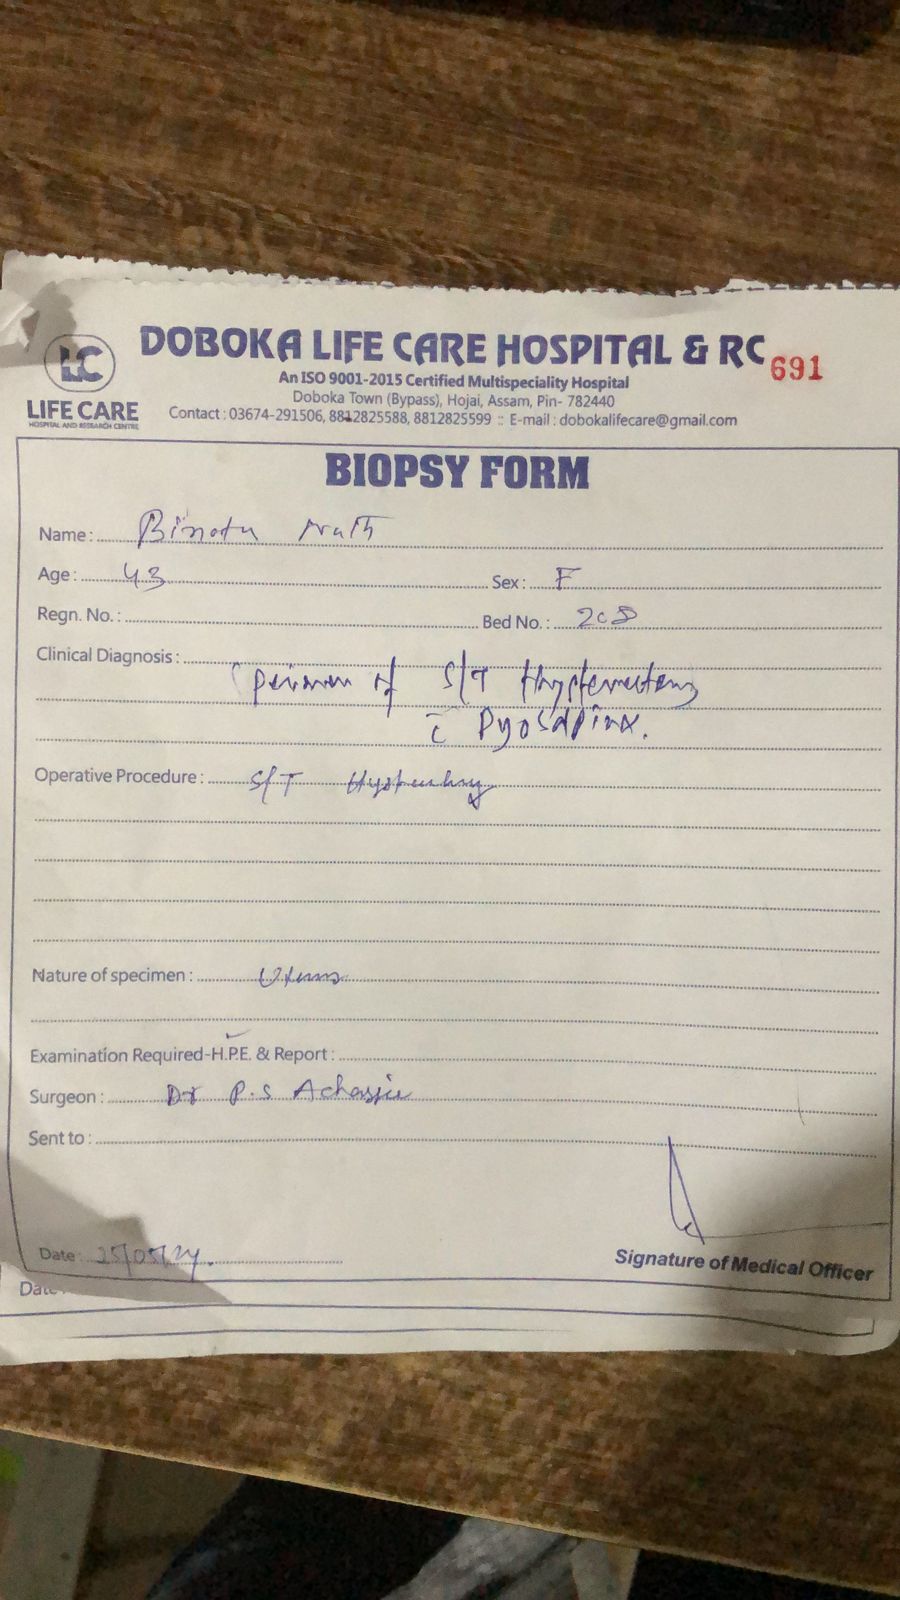 LC
LIFE CARE
HOSPITAL AND RESEARCH CENTRE
DOBOKA LIFE CARE HOSPITAL & RC
691
An ISO 9001-2015 Certified Multispeciality Hospital
Doboka Town (Bypass), Hojai, Assam, Pin- 782440
Contact : 03674-291506, 8812825588, 8812825599 :: E-mail : dobokalifecare@gmail.com
BIOPSY FORM
Name : Binota Nath
Age : 43 Sex : F
Regn. No. : Bed No. : 208
Clinical Diagnosis :
Specimen of S/T Hysterectomy
c̄ Pyosalpinx.
Operative Procedure : S/T Hysterectomy
Nature of specimen : Uterus
Examination Required-H.P.E. & Report :
Surgeon : Dr P.S Acharjie
Sent to :
Date : 25/05/24.
Signature of Medical Officer
Date :